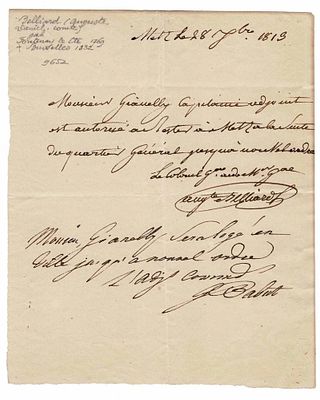 Belliard (Auguste
Daniel, comte)
né
Fontenay le Cte 1769
+ Bruxelles 1832
9652
Metz le 28 7bre 1813
Monsieur Gianelly Capitaine adjoint
est autorisé a rester à Metz a la suite
du quartier Général jusqu'à nouvel ordre
Le Colonel Gen
Augte Belliard
Monsieur Gianelly sera logé en
ville jusqu'a nouvel ordre
L'adjt Commt